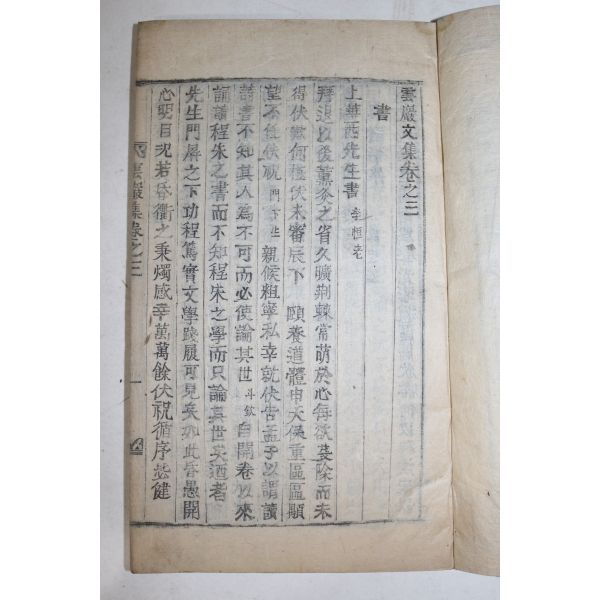 雲巖文集卷之三
書
上華西先生書 李恒老
拜退以後薰炙之省久曠荊棘常萌於心每欲芟除而未
得伏歎何極伏未審辰下 頤養道體申夭保重區區願
望不任伏祝門下生 親候粗寧私幸就伏告孟子以謂讀
其書不知其人爲不可而必使論其世斗欽自開卷以來
誦讀程朱之書而不知程朱之學而只論其世矣迺者
先生門屛之下功程篤實文學踐履可見矣況此昏愚開
心明目況若昏衢之秉燭感幸萬萬餘伏祝循序益健
雲巖集卷之三
一